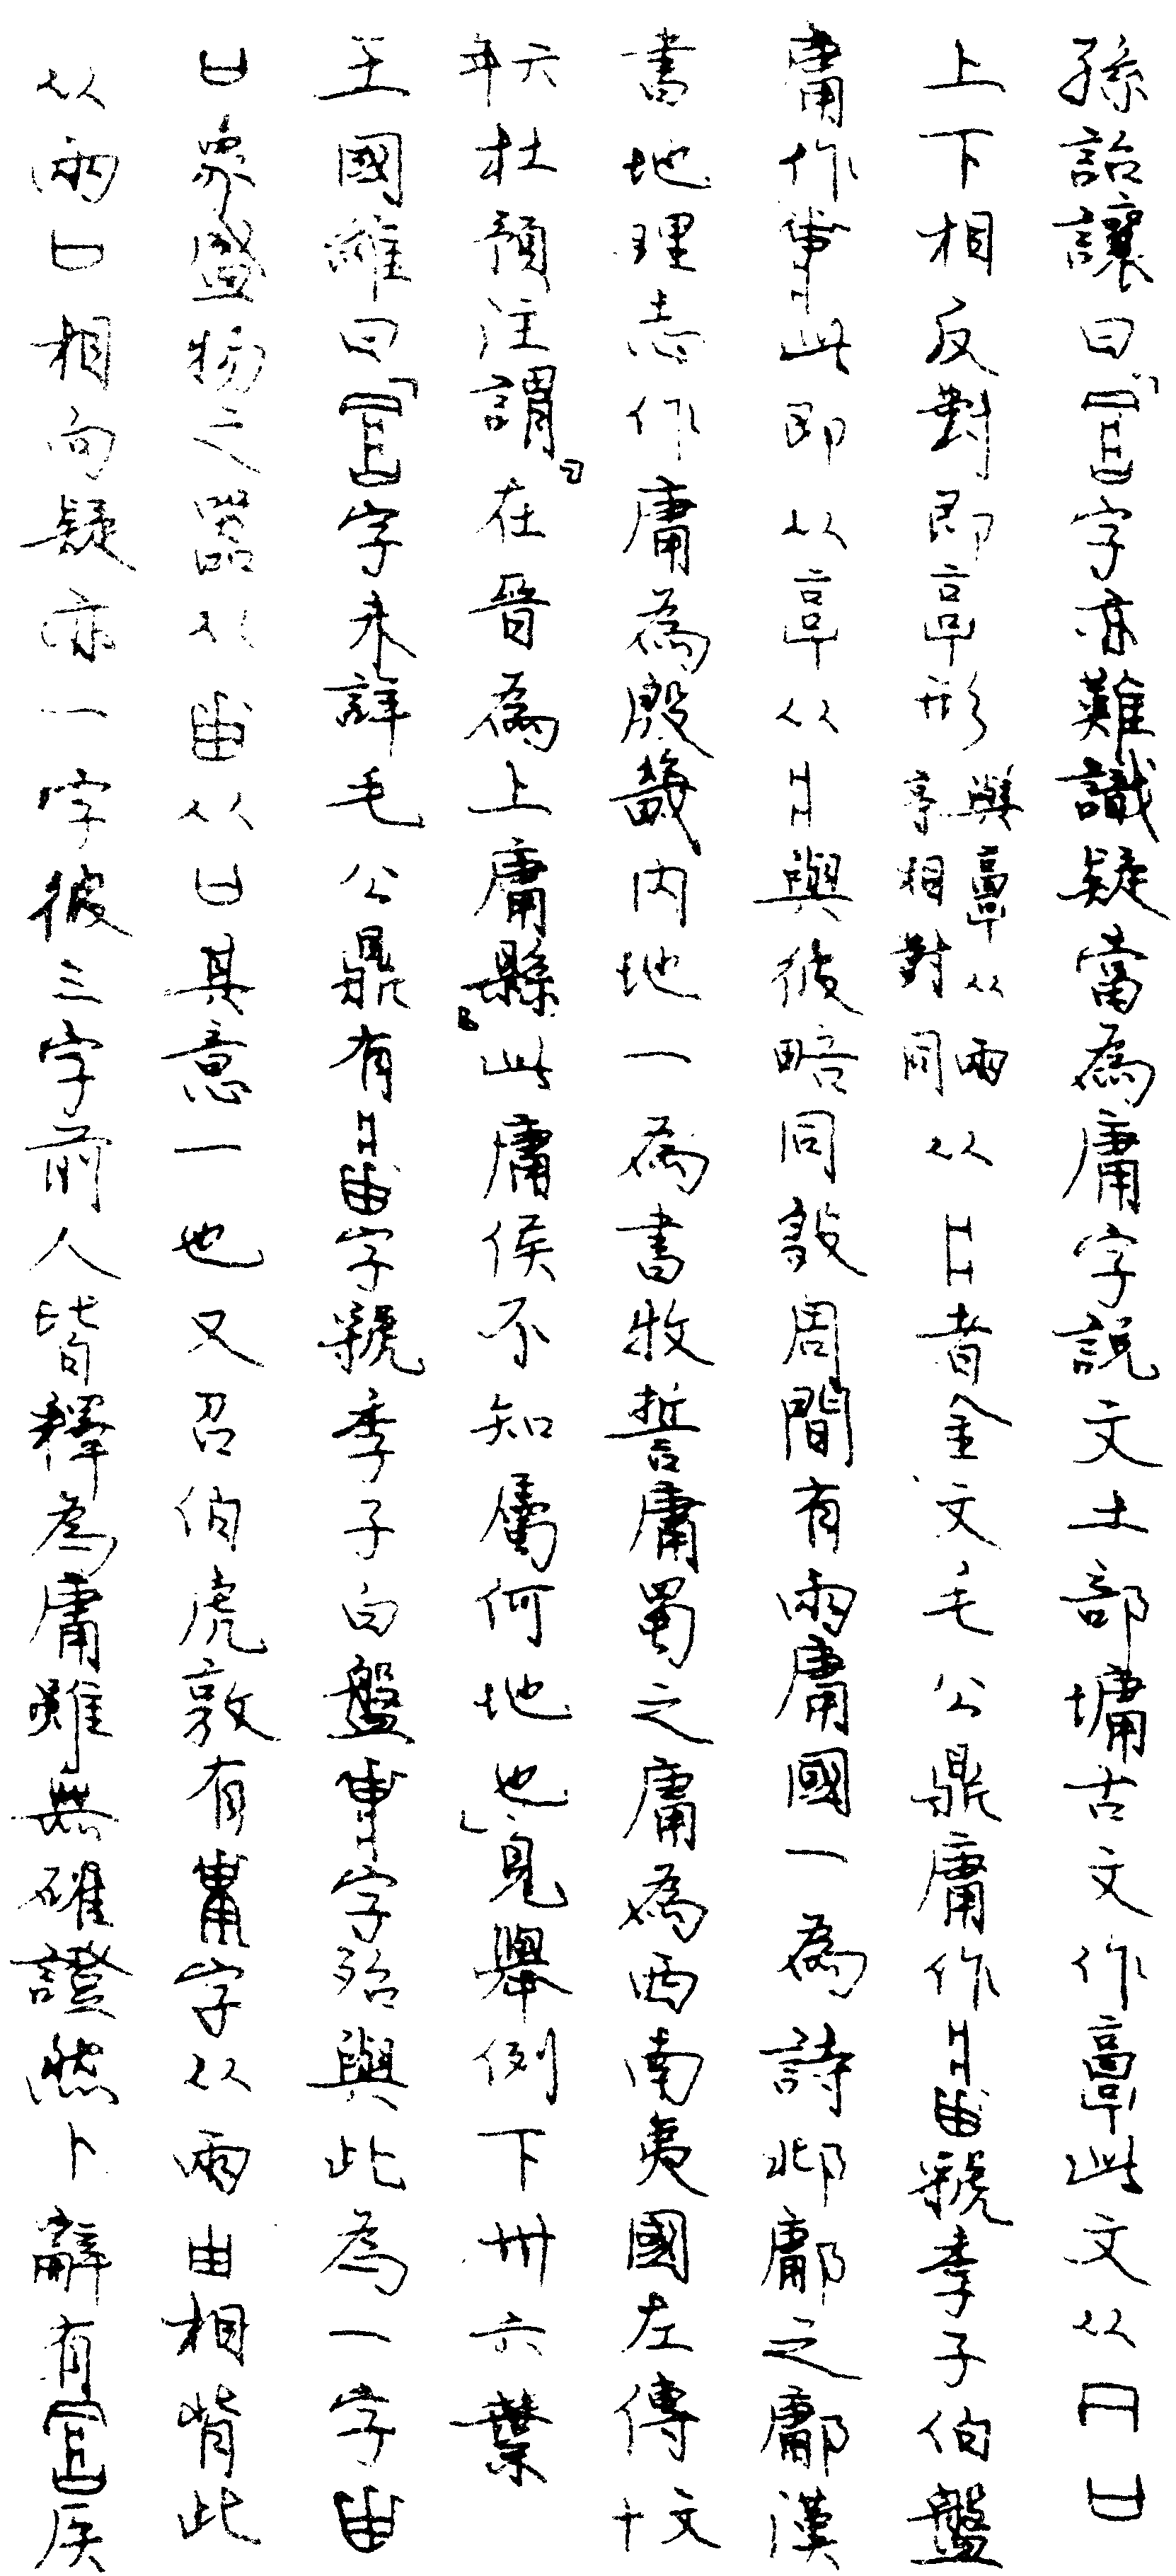 孫詒讓曰「字亦難識疑當為庸字說文土部墉古文作𩫖此文从冂凵
上下相反對即𩫏形與𩫖从兩亯相對同从者金文毛公鼎庸作虢季子伯盤
庸作此即从𩫏从與彼略同殷周間有兩庸國一為詩邶鄘之鄘漢
書地理志作庸為殷畿内地一為書牧誓庸蜀之庸為西南夷國左傳文十
六年杜預注謂『在晉為上庸縣』此庸侯不知屬何地也」見舉例下卅六葉
王國維曰「字未詳毛公鼎有字虢季子白盤字殆與此為一字𠙹
凵象盛物之器从𠙹从凵其意一也又召伯虎敦有字从兩由相背此
从兩凵相向疑亦一字彼三字前人皆釋為庸雖無確證然卜辭有𥎦